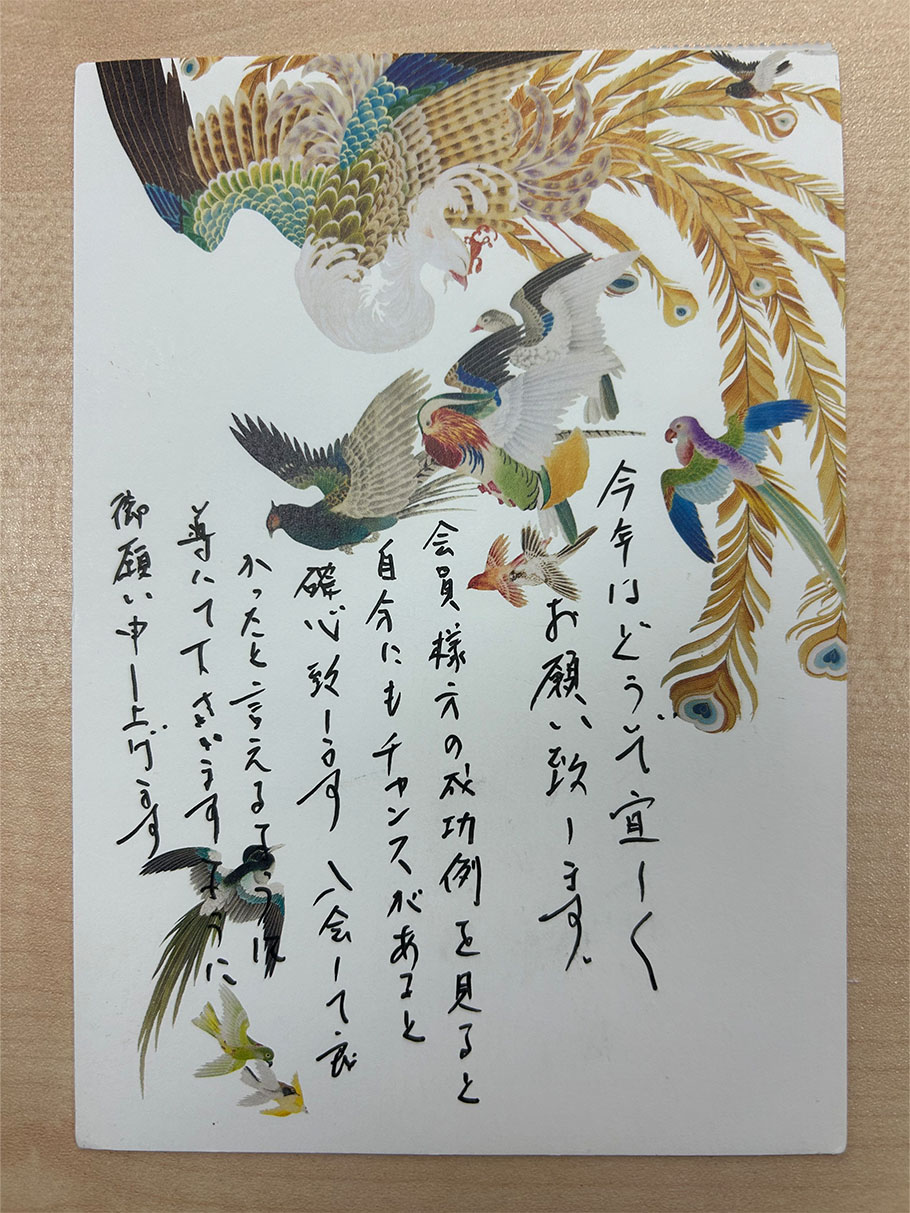 今年はどうぞ宜しく
お願い致します。
会員様方の成功例を見ると
自分にもチャンスがあると
確心致します 入会して良
かったと言えるような
導にて下さいます
ように
御願い申し上げます